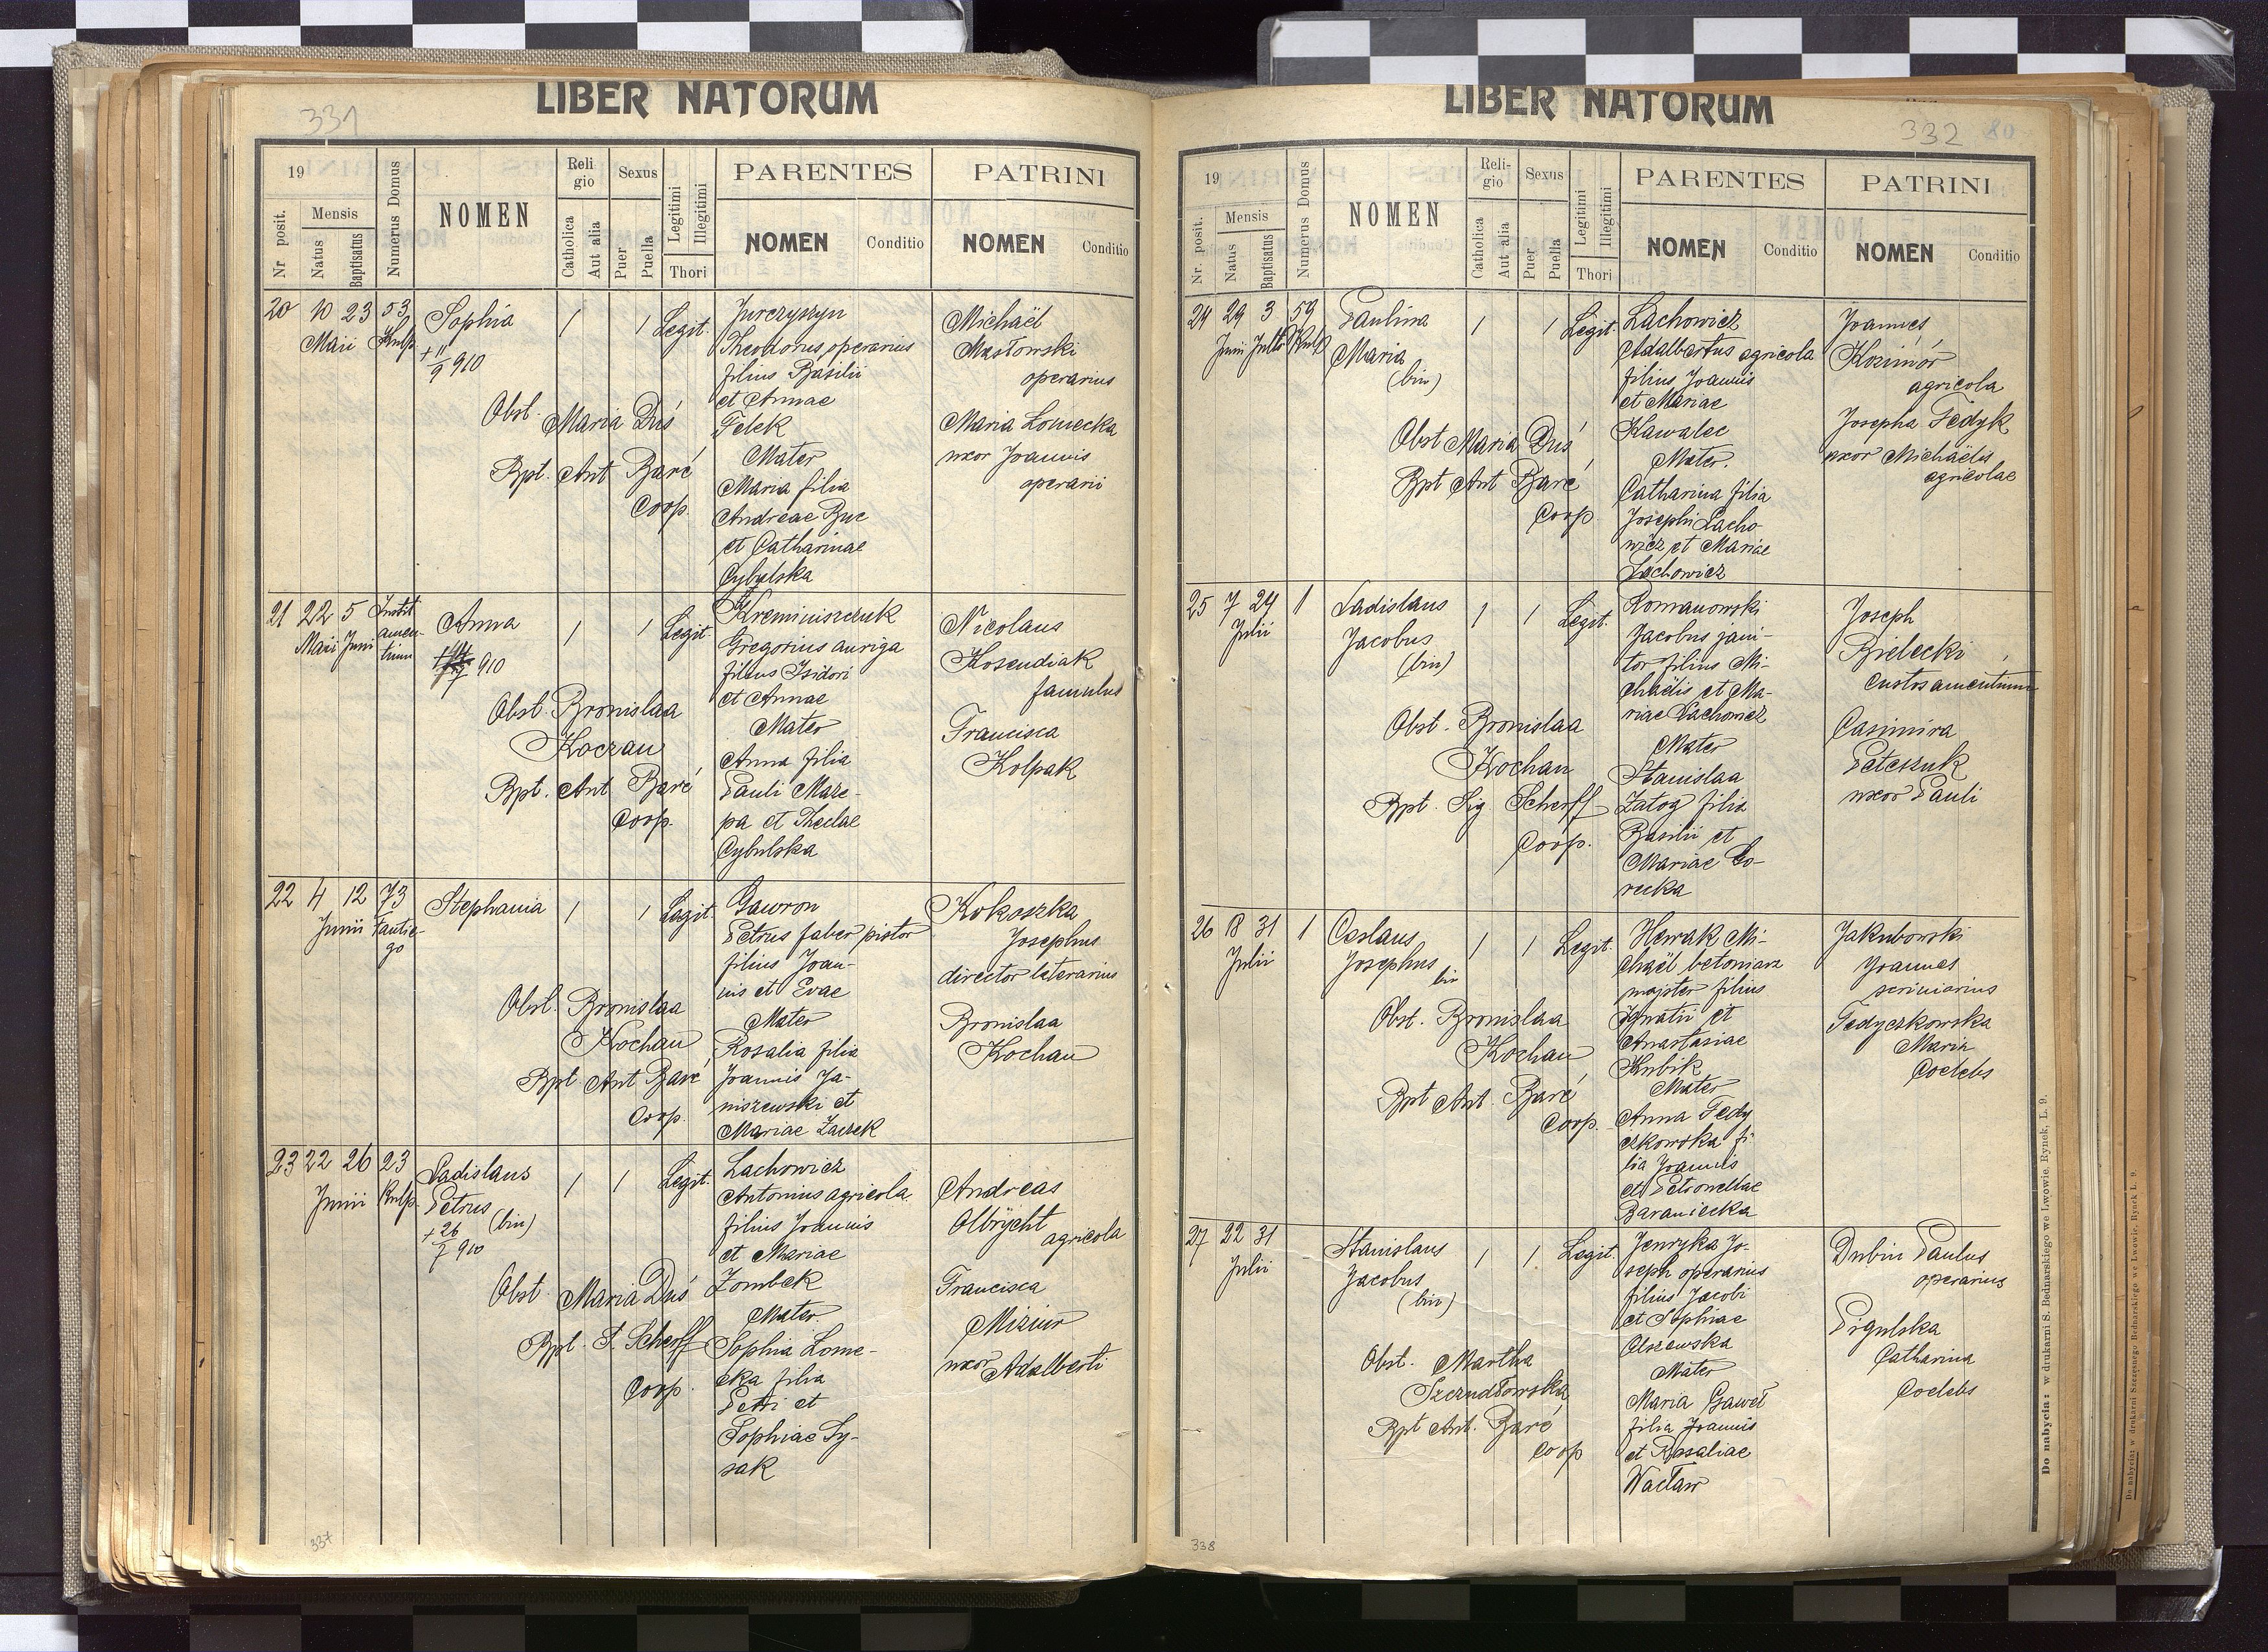 LIBER NATORUM
331
19
Nr posit.
Mensis
Natus
Baptisatus
Numerus Domus
NOMEN
Religio
Catholica
Aut alia
Sexus
Puer
Puella
Legitimi
Illegitimi
Thori
PARENTES
NOMEN Conditio
PATRINI
NOMEN Conditio
20 10 23 53
Maii Kulp.
Sophia
+ 11/9 910
1 1 Legit.
Obst. Maria Duś
Bpt. Ant Barć
Coop.
Jurczyszyn
Theodorus operarius
filius Basilii
et Annae
Felek
Mater
Maria filia
Andreae Buc
et Catharinae
Cybulska
Michaël
Masłowski
operarius
Maria Lomecka
uxor Joannis
operarii
21 22 5 Instit
Maii Junii amen-
tium
Anna
910
1 1 Legit.
Obst. Bronislaa
Koczan
Bpt. Ant Barć
Coop.
Kreminiszczuk
Gregorius auriga
filius Isidori
et Annae
Mater
Anna filia
Pauli Maze-
pa et Theclae
Cybulska
Nicolaus
Kosendiak
famulus
Francisca
Kolpak
22 4 12 73
Junii
Stephania
1 1 Legit
Obst. Bronislaa
Kochan
Bpt. Ant Barć
Coop.
Gawron
Petrus faber pistor
filius Joan-
nis et Evae
Mater
Rosalia filia
Joannis Ja-
niszewski et
Mariae Zaczek
Kokoszka
Josephus
director leterarius
Bronislaa
Kochan
23 22 26 23
Junii Kulp.
Ladislaus
Petrus
(bin)
+ 26/7 910
1 1 Legit.
Obst Maria Duś
Bpt. S. Scherff
Coop.
Lachowicz
Antonius agricola
filius Joannis
et Mariae
Zombek
Mater.
Sophia Lome-
cka filia
Petri et
Sophiae Sy-
sak
Andreas
Olbrycht
agricola
Francisca
Miziur
uxor Adalberti
337
LIBER NATORUM
332
80
19
Nr. posit.
Mensis
Natus
Baptisatus
Numerus Domus
NOMEN
Religio
Catholica
Aut alia
Sexus
Puer
Puella
Legitimi
Illegitimi
Thori
PARENTES
NOMEN Conditio
PATRINI
NOMEN Conditio
24 29 3 59
Junii Julii Kulp
Paulina
Maria
(bin)
1 1 Legit.
Obst Maria Duś
Bpt Ant Barć
Coop.
Lachowicz
Adalbertus agricola
filius Joannis
et Mariae
Kawalec
Mater.
Catharina filia
Josephi Lacho-
wicz et Mariae
Lachowicz
Joannes
Kozimór
agricola
Josepha Fedyk
uxor Michaëlis
agricolae
25 7 24 1
Julii
Ladislaus
Jacobus
(bin)
1 1 Legit.
Obst. Bronislaa
Kochan
Bpt. Sig Scherff
Coop.
Romanowski
Jacobus jani-
tor filius Mi-
chaëlis et Ma-
riae Lachowicz
Mater
Stanislaa
Zatog filia
Basilii et
Mariae Go-
recka
Joseph
Bielecki
custos amentium
Casimira
Peteszuk
uxor Pauli
26 18 31 1
Julii
Ceslaus
Josephus
bin
1 1 Legit.
Obst. Bronislaa
Kochan
Bpt Ant. Barć
Coop.
Hewak Mi-
chaël betoniarz
majster filius
Ignatii et
Anastasiae
Kubik
Mater
Anna Fedy
czkowska fi-
lia Joannis
et Petronellae
Baraniecka
Jakubowski
Joannes
scriniarius
Fedyczkowska
Maria
Coelebs
27 22 31
Julii
Stanislaus
Jacobus
(bin)
1 1 Legit.
Obst. Martha
Szczudłowska
Bpt Ant. Barć
Coop
Jenryka Jo-
seph operarius
filius Jacobi
et Sophiae
Olszewska
Mater
Maria Gaweł
filia Joannis
et Rosaliae
Wacław
Dubin Paulus
operarius
Pigulska
Catharina
Coelebs
338
Do nabycia: w drukarni S. Bednarskiego we Lwowie, Rynek, L. 9.
Do nabycia: w drukarni Szczęsnego Bednarskiego we Lwowie, Rynek L. 9.